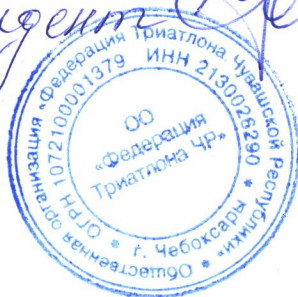 Общественная организация «Федерация Триатлона Чувашской Республики»
* г. Чебоксары *
ОГРН 1072100001379 ИНН 2130026290
ОО
«Федерация
Триатлона ЧР»